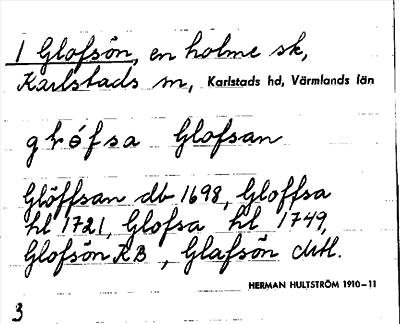 1 Glofsön, en holme sk,
Karlstads m, Karlstads hd, Värmlands län
glófsa Glofsan
Glöffsan db 1698, Gloffsa
hl 1721, Glofsa hl 1749,
Glofsön KB, Glafsön ditl.
HERMAN HULTSTRÖM 1910-11
3